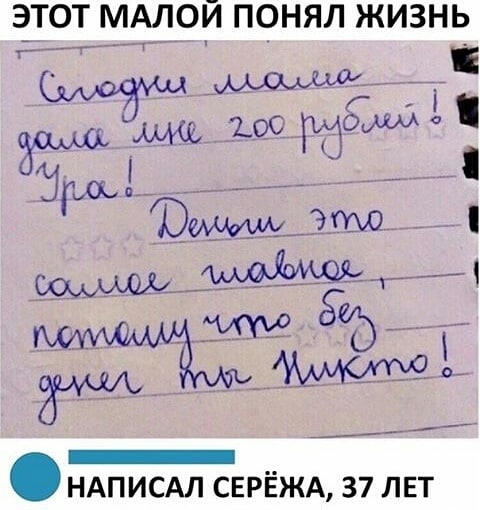 ЭТОТ МАЛОЙ ПОНЯЛ ЖИЗНЬ
Сегодня мама
дала мне 200 рублей!
Ура!
Деньги это
самое главное,
потому что без
денег ты Никто!
НАПИСАЛ СЕРЁЖА, 37 ЛЕТ